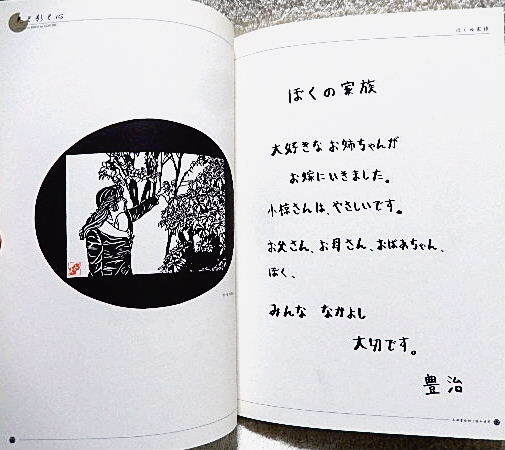 光と影と心
ぼくの家族
ぼくの家族
大好きなお姉ちゃんが
お嫁にいきました。
小椋さんは、やさしいです。
お父さん、お母さん、おばあちゃん、
ぼく、
みんな なかよし
大切です。
豊治